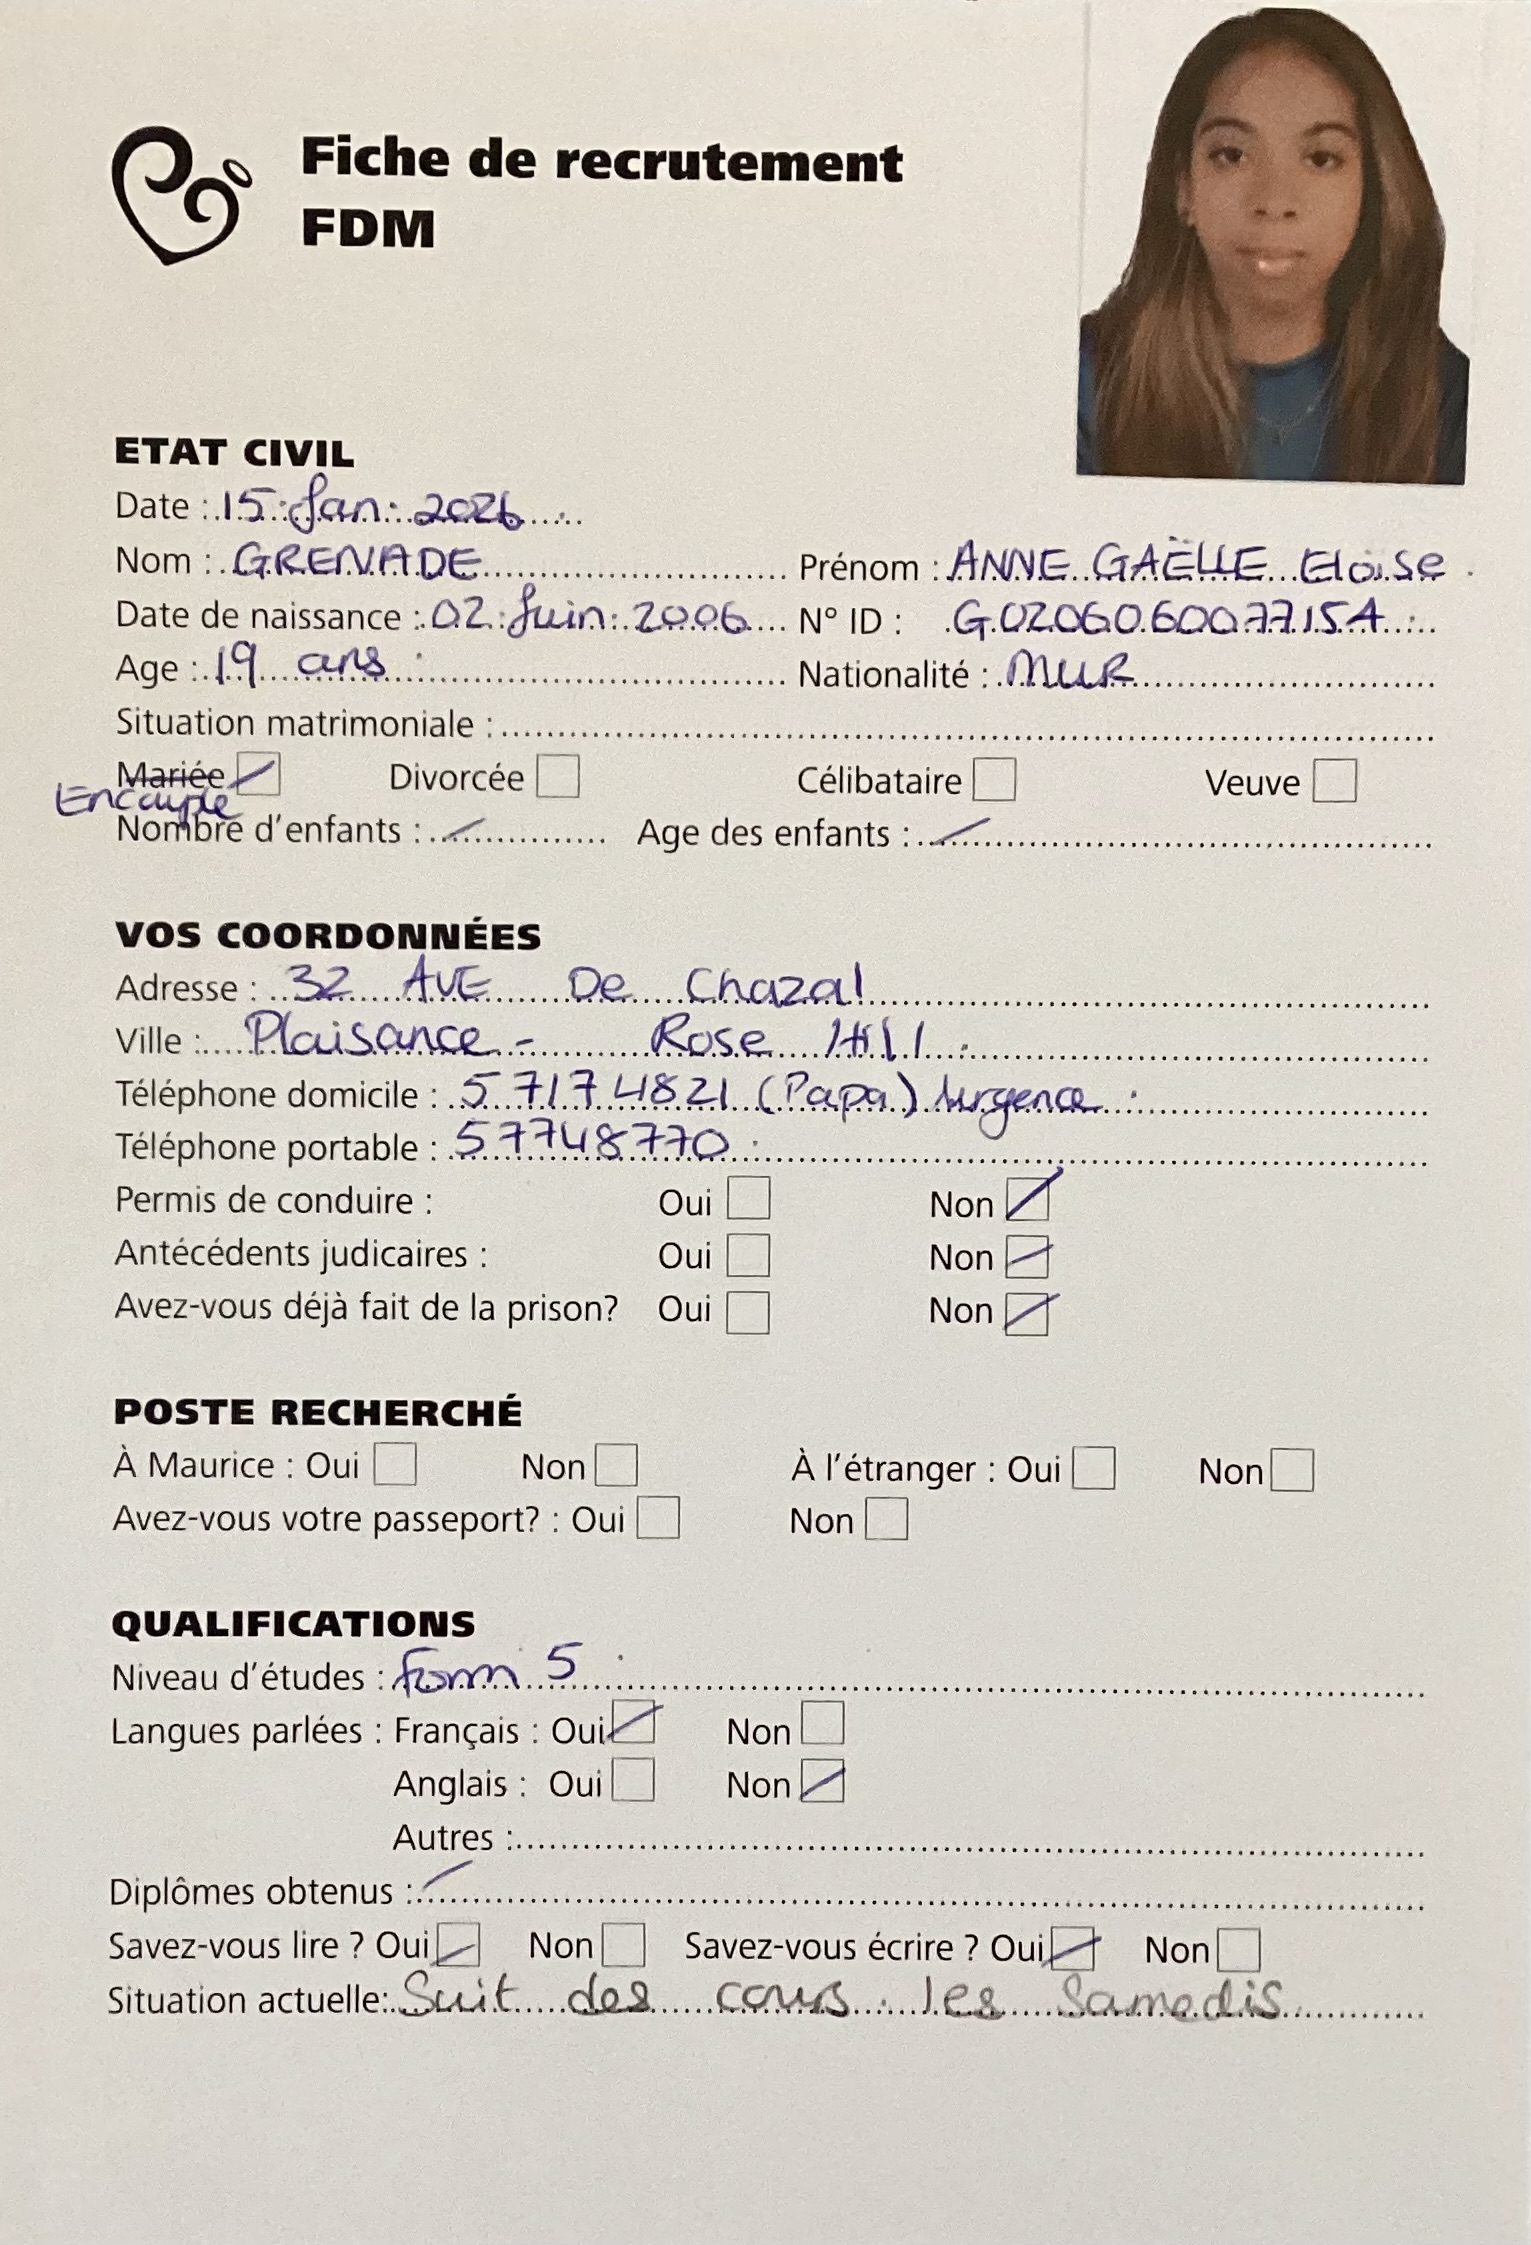 Fiche de recrutement
FDM
ETAT CIVIL
Date : 15 Jan 2026
Nom : GRENADE Prénom : ANNE GAËLLE Eloïse
Date de naissance : 02 Juin 2006 N° ID : G0206060077154
Age : 19 ans Nationalité : MUR
Situation matrimoniale :
Mariée Divorcée Célibataire Veuve
En couple
Nombre d'enfants : Age des enfants :
VOS COORDONNÉES
Adresse : 32 AVE De Chazal
Ville : Plaisance - Rose Hill
Téléphone domicile : 5 717 4821 (Papa) Urgence
Téléphone portable : 57748770
Permis de conduire : Oui Non
Antécédents judicaires : Oui Non
Avez-vous déjà fait de la prison? Oui Non
POSTE RECHERCHÉ
À Maurice : Oui Non À l'étranger : Oui Non
Avez-vous votre passeport? : Oui Non
QUALIFICATIONS
Niveau d'études : Form 5
Langues parlées : Français : Oui Non
Anglais : Oui Non
Autres :
Diplômes obtenus :
Savez-vous lire ? Oui Non Savez-vous écrire ? Oui Non
Situation actuelle: Suit des cours les Samedis